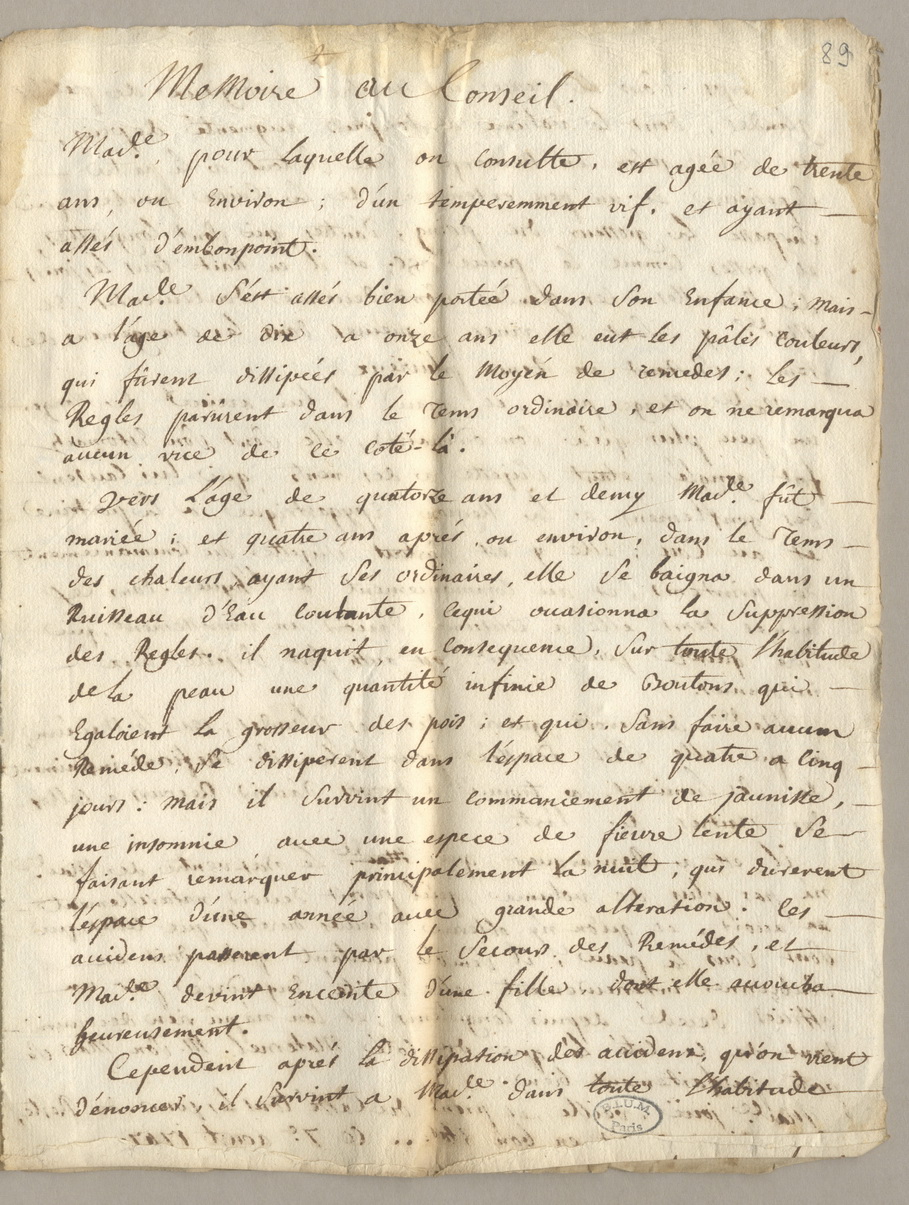 89
Memoire au Conseil.
Made. pour laquelle on consulte, est agée de trente
ans, ou Environ ; d'un temperemment vif, et ayant
assés d'embonpoint.
Made. s'est assés bien portée dans son Enfance ; mais
a l'âge de dix a onze ans elle eut les pâles couleurs,
qui fûrent dissipées par le Moyén de remedes ; les
Regles parurent dans le Tems ordinaire, et on ne remarqua
aucun vice de ce coté-là.
Vers L'age de quatorze ans et demy Made. fût
mariée ; et quatre ans aprés, ou environ, dans le Tems
des chaleurs, ayant ses ordinaires, elle se baigna dans un
Ruisseau d'Eau coulante, cequi occasionna la suppression
des Regles. il naquit, en consequence, sur toute l'habitude
dela peau une quantité infinie de Boutons, qui
Egaloient la grosseur des pois ; et qui, sans faire aucun
Reméde, se dissiperent dans l'espace de quatre a Cinq
jours : mais il survint un commanicement de jaunisse,
une insomnie, avec une espece de fievre lente se
faisant remarquer principalement La nuit ; qui durerent
l'espace d'une année avec grande alteration. les
accidens passerent par le secours des Remédes, et
Made. devint Enceinte d'une fille dont elle accoucha
heureusement.
Cependent aprés la dissipation des accidens, qu'on vient
d'énoncer, il survint a Made. dans toute l'habitude
B.I.U.M.
Paris